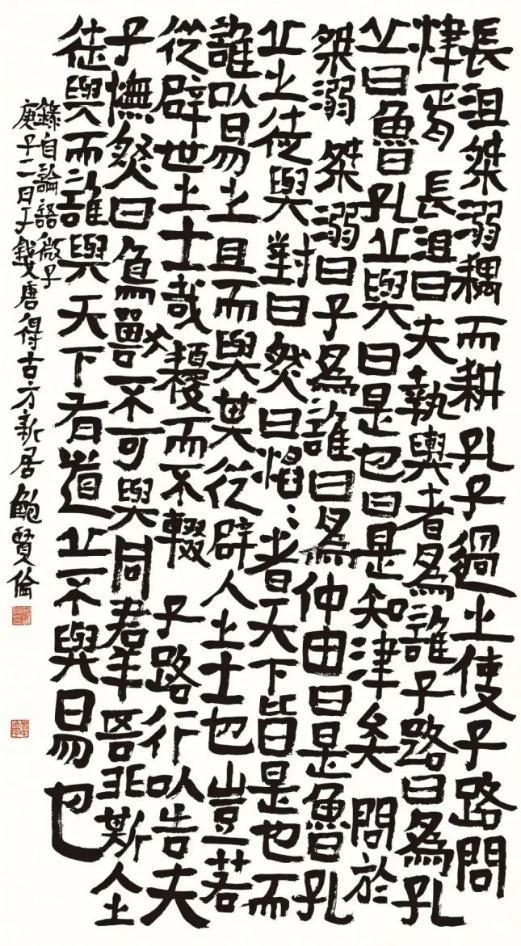 長沮桀溺耦而耕孔子過之使子路問
津焉 長沮曰夫執輿者為誰子路曰為孔
丘曰魯孔丘與曰是也曰是知津矣 問於
桀溺 桀溺曰子為誰曰為仲由曰是魯孔
丘之徒與 對曰然曰滔:者天下皆是也而
誰以易之且而與其從辟人之士也豈若
從辟世之士哉耰而不輟 子路行以告夫
子憮然曰鳥獸不可與同羣吾非斯人之
徒與而誰與天下有道丘不與易也
錄自論語微子
庚子二月于錢唐得古方新居 鮑賢倫